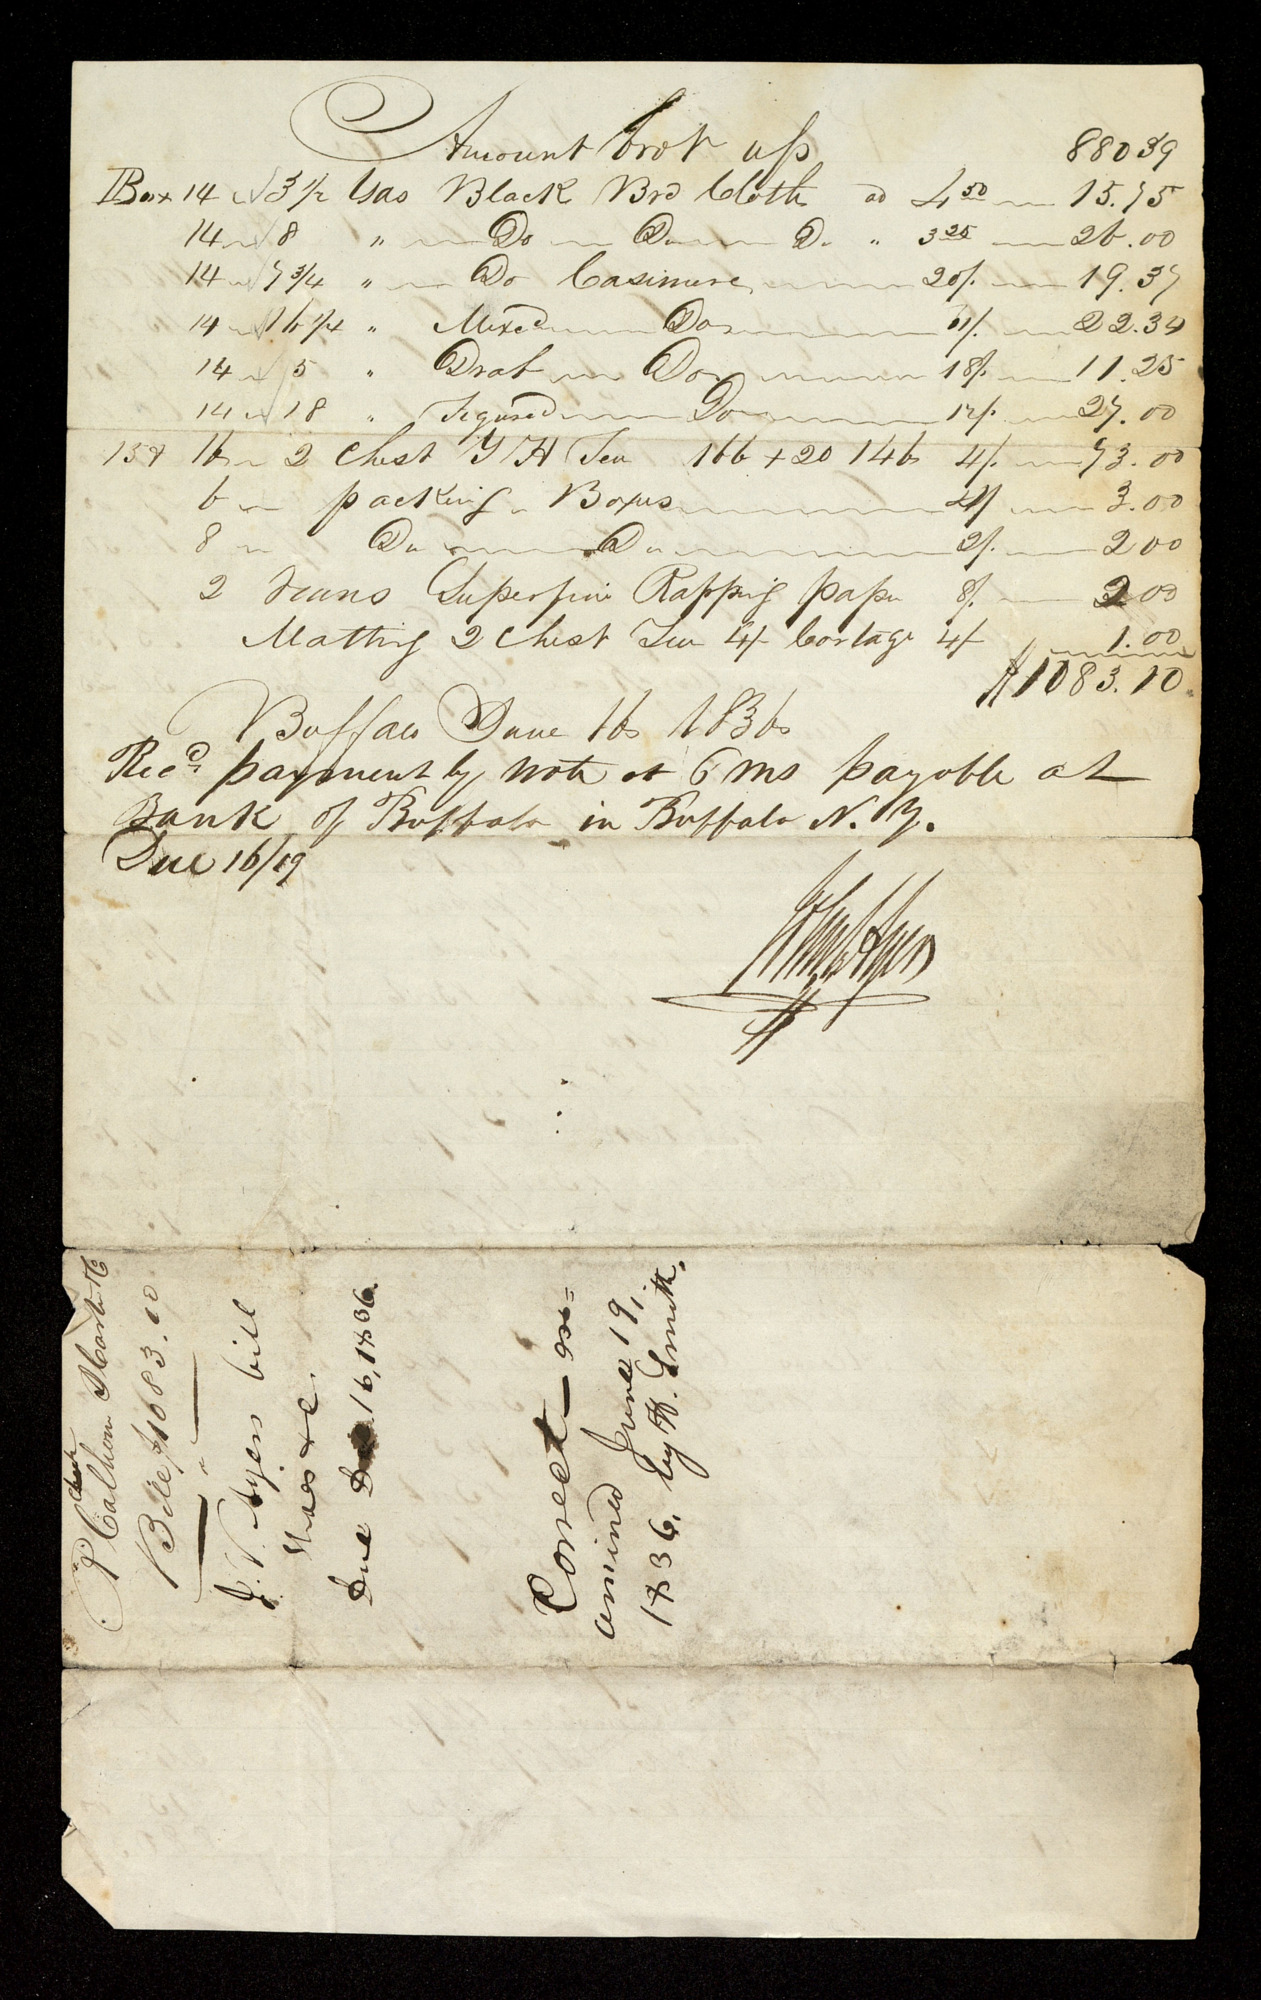 Amount brot up 880 39
Box 14 3 1/2 Yds Black Brd Cloth ad 4 50 15.75
14 8 " Do Do Do " 3 25 26.00
14 7 3/4 " Do Casimere 20/. 19.37
14 16 1/4 " Mixed Do 11/. 22.34
14 5 " Drab Do 18/. 11.25
14 18 " Figured Do 12/. 27.00
157 16 2 Chest Y H Tea 166 + 20 146 4/. 73.00
6 packing Boxes 4/ 3.00
8 Do Do 2/. 2 00
2 reams Superfine Rapping paper 8/. 2 00
Matting 2 Chest Tea 4/ Cortage 4/ 1.00
$1083.10
Buffalo June 16 1836
Recd payment by note at 6 ms payable at
Bank of Buffalo in Buffalo N. Y.
Due 16/19
P Calhoun
Bill $1083.10
J. V. Ayers bill
Due Dec 16, 1836.
Corect ex=
amined June 19,
1836, by H. Smith.